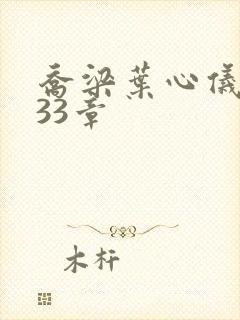 乔梁葉心儀
33章
木杆